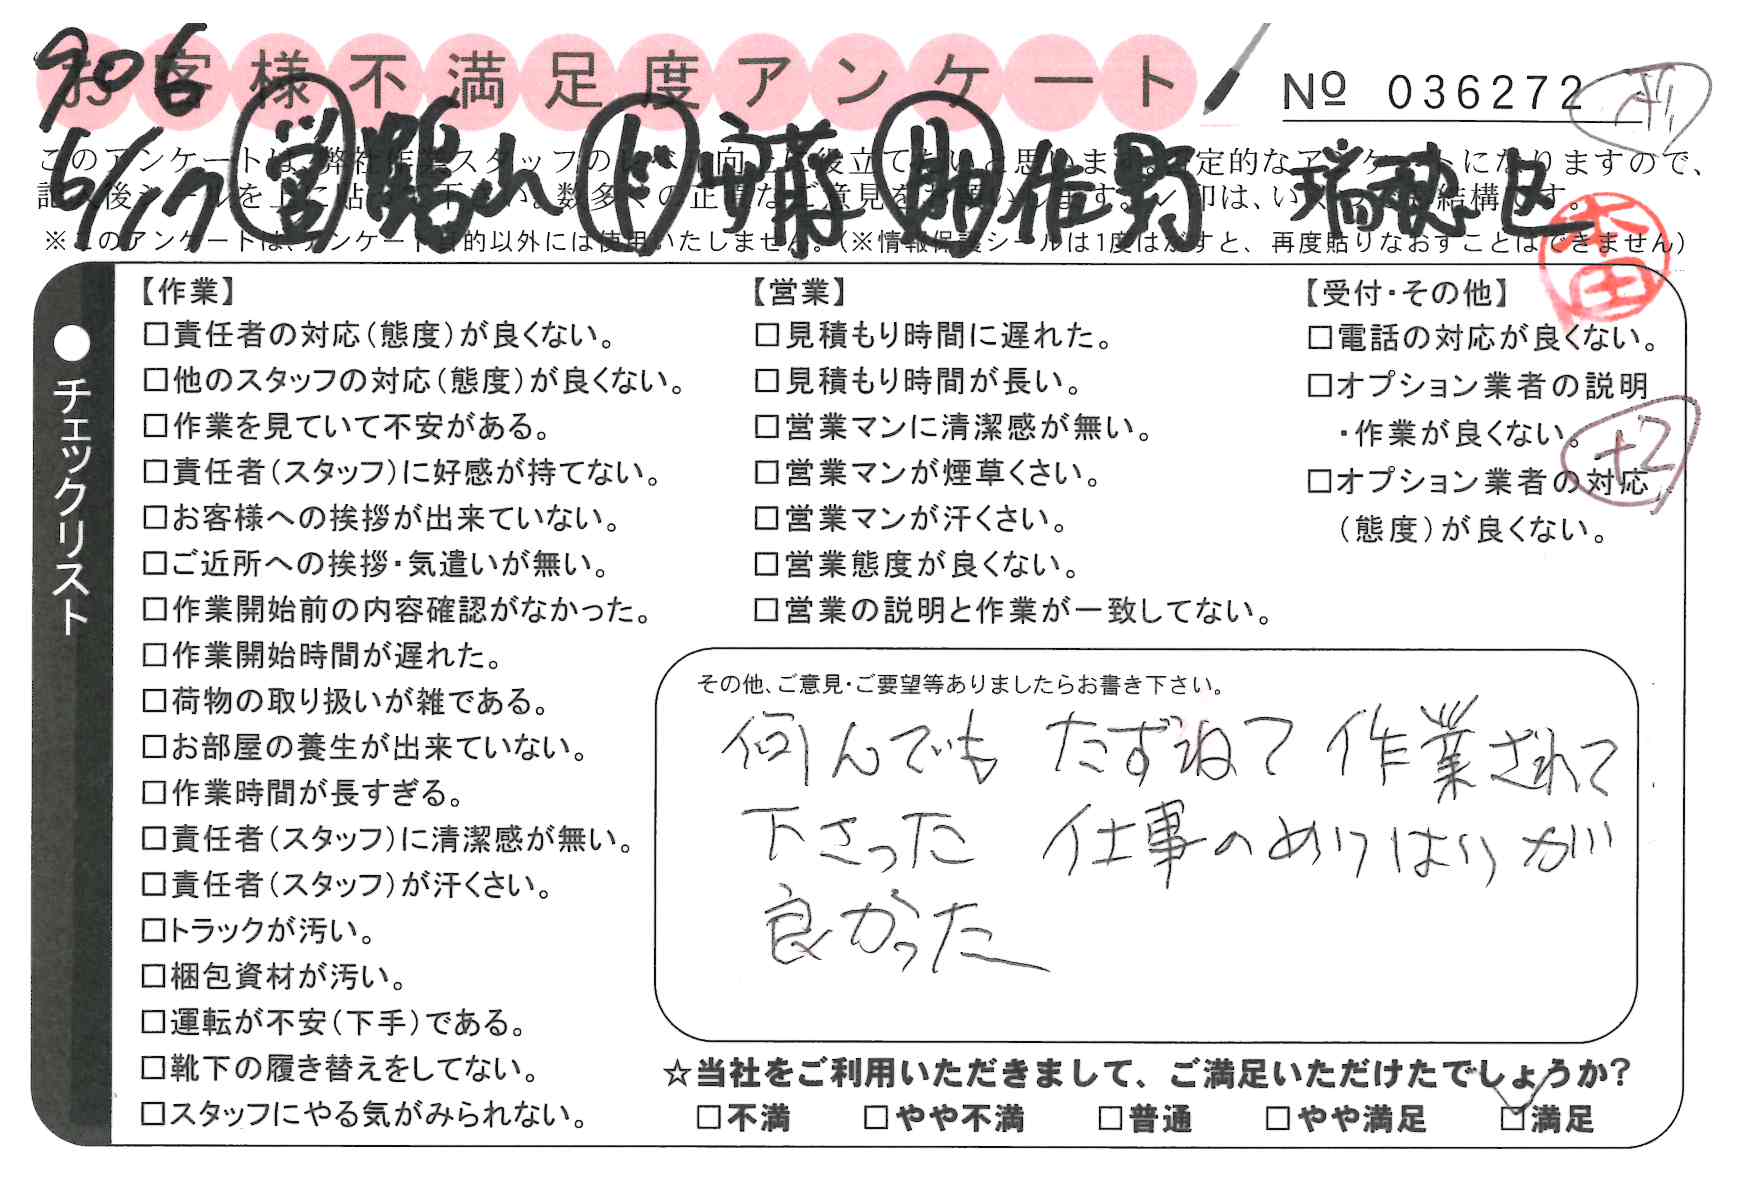 906
お客様不満足度アンケート
Nº 036272
6/17 営 ド 助 佐野 瑞穂区
※このアンケートは、アンケート目的以外には使用いたしません。(※情報保護シールは1度はがすと、再度貼りなおすことはできません)
本田
●チェックリスト
【作業】
□責任者の対応(態度)が良くない。
□他のスタッフの対応(態度)が良くない。
□作業を見ていて不安がある。
□責任者(スタッフ)に好感が持てない。
□お客様への挨拶が出来ていない。
□ご近所への挨拶・気遣いが無い。
□作業開始前の内容確認がなかった。
□作業開始時間が遅れた。
□荷物の取り扱いが雑である。
□お部屋の養生が出来ていない。
□作業時間が長すぎる。
□責任者(スタッフ)に清潔感が無い。
□責任者(スタッフ)が汗くさい。
□トラックが汚い。
□梱包資材が汚い。
□運転が不安(下手)である。
□靴下の履き替えをしてない。
□スタッフにやる気がみられない。
【営業】
□見積もり時間に遅れた。
□見積もり時間が長い。
□営業マンに清潔感が無い。
□営業マンが煙草くさい。
□営業マンが汗くさい。
□営業態度が良くない。
□営業の説明と作業が一致してない。
【受付・その他】
□電話の対応が良くない。
□オプション業者の説明
・作業が良くない。
+2
□オプション業者の対応
(態度)が良くない。
その他、ご意見・ご要望等ありましたらお書き下さい。
何んでも たずねて 作業されて
下さった 仕事のめりはりが
良かった
☆当社をご利用いただきまして、ご満足いただけたでしょうか?
□不満 □やや不満 □普通 □やや満足 ☑満足